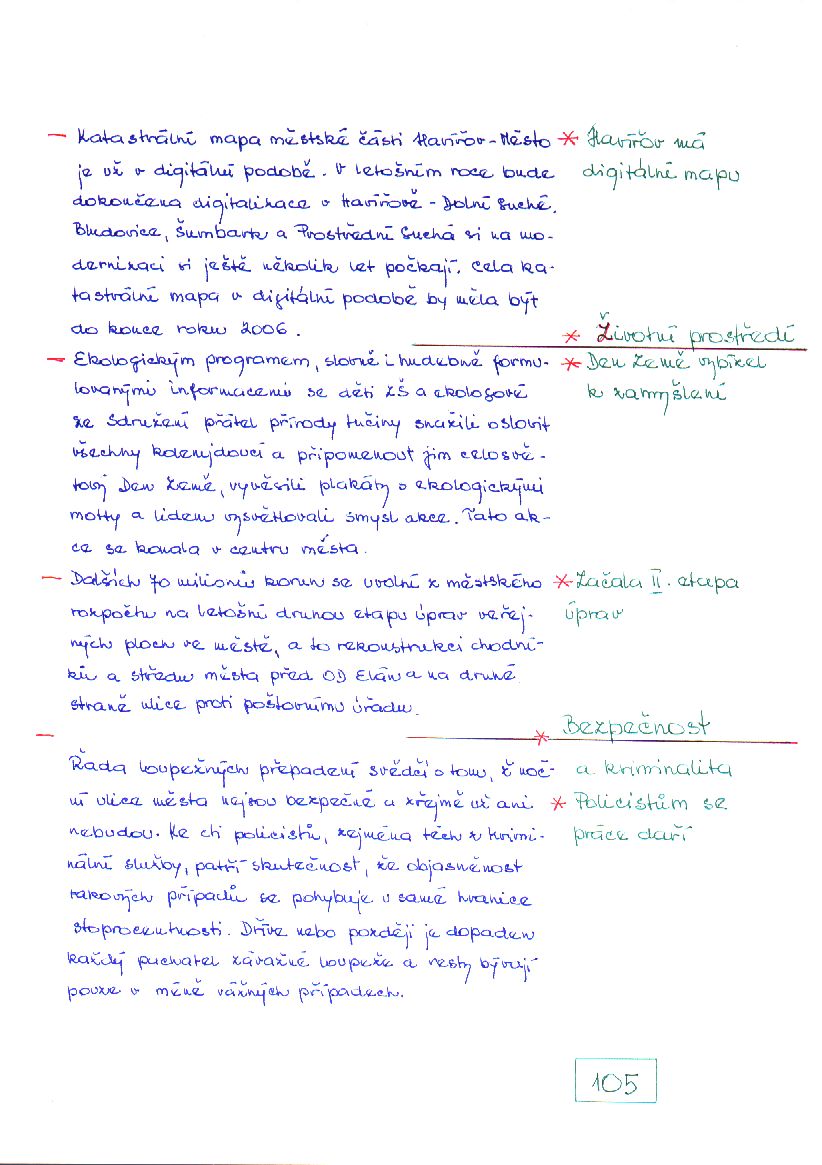 – Katastrální mapa městské části Havířov-Město
je už v digitální podobě. V letošním roce bude
dokončena digitalizace v Havířově - Dolní Suché.
Bludovice, Šumbark a Prostřední Suchá si na mo-
dernizaci si ještě několik let počkají. Celá ka-
tastrální mapa v digitální podobě by měla být
do konce roku 2006.
* Havířov má
digitální mapu
* Životní prostředí
– Ekologickým programem, slovně i hudebně formu-
lovanými informacemi se děti ZŠ a ekologové
ze Sdružení přátel přírody tučiny snažili oslovit
všechny kolemjdoucí a připomenout jim celosvě-
tový Den Země, vyvěsili plakáty s ekologickými
motty a lidem vysvětlovali smysl akce. Tato ak-
ce se konala v centru města.
* Den Země vybízel
k zamyšlení
– Dalších 70 milionů korun se uvolní z městského
rozpočtu na letošní druhou etapu úprav veřej-
ných ploch ve městě, a to rekonstrukci chodní-
ků a středu města před OD Elán a na druhé
straně ulice proti poštovnímu úřadu.
* Začala II. etapa
úprav
* Bezpečnost
a kriminalita
– Řada loupežných přepadení svědčí o tom, ž noč-
ní ulice města nejsou bezpečné a zřejmě už ani
nebudou. Ke cti policistů, zejména těch z krimi-
nální služby, patří skutečnost, že objasněnost
takových případů se pohybuje u samé hranice
stoprocentnosti. Dříve nebo později je dopaden
každý pachatel závažné loupeže a resty bývají
pouze v méně vážných případech.
* Policistům se
práce daří
105